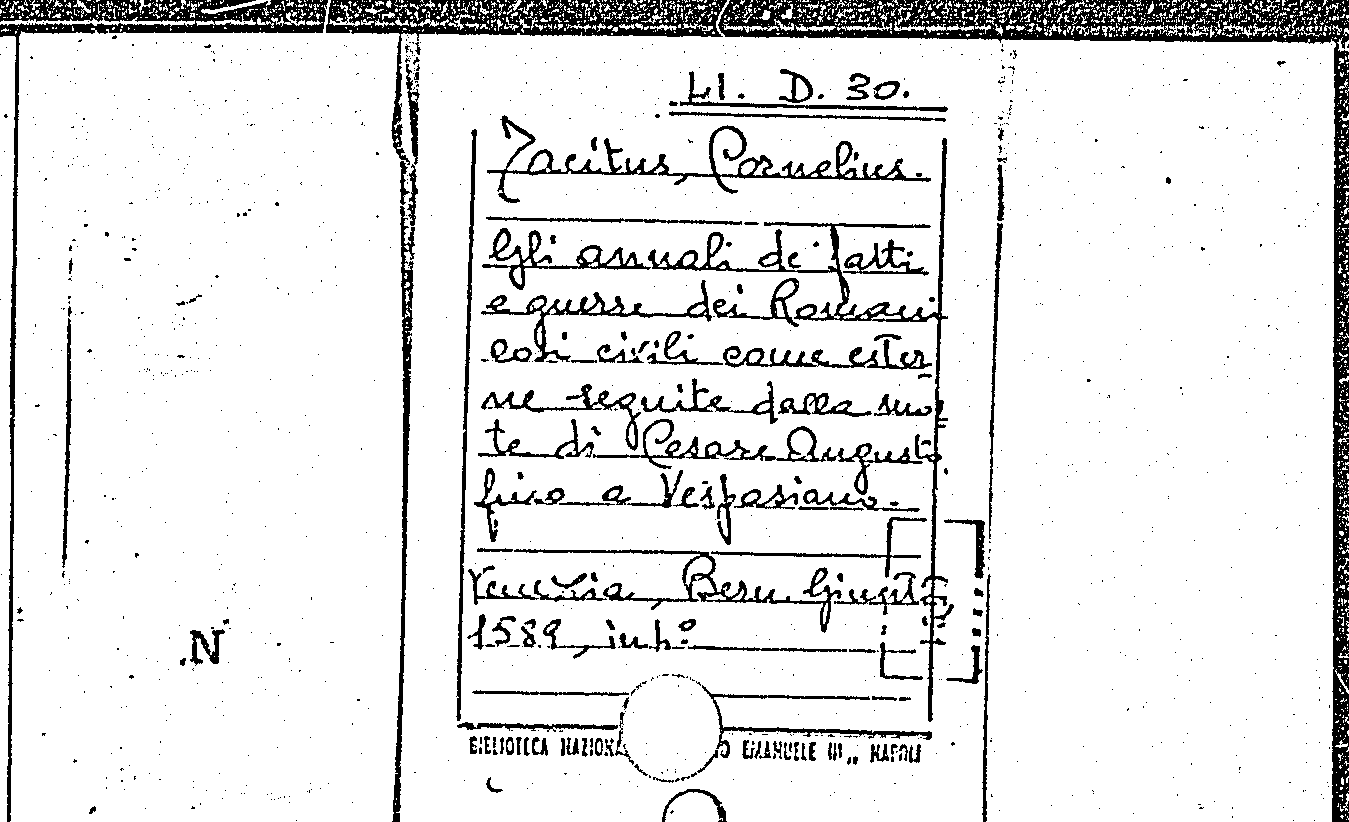 LI. D. 30.
Tacitus, Cornelius.
Gli annali de' fatti
e guerre dei Romani
così civili come ester
ne seguite dalla mor
te di Cesare Augusto
fino a Vespasiano.
Venezia, Bern. Giunti,
1589, in 4º
N
BIBLIOTECA NAZIONA O EMANUELE III „ NAPOLI